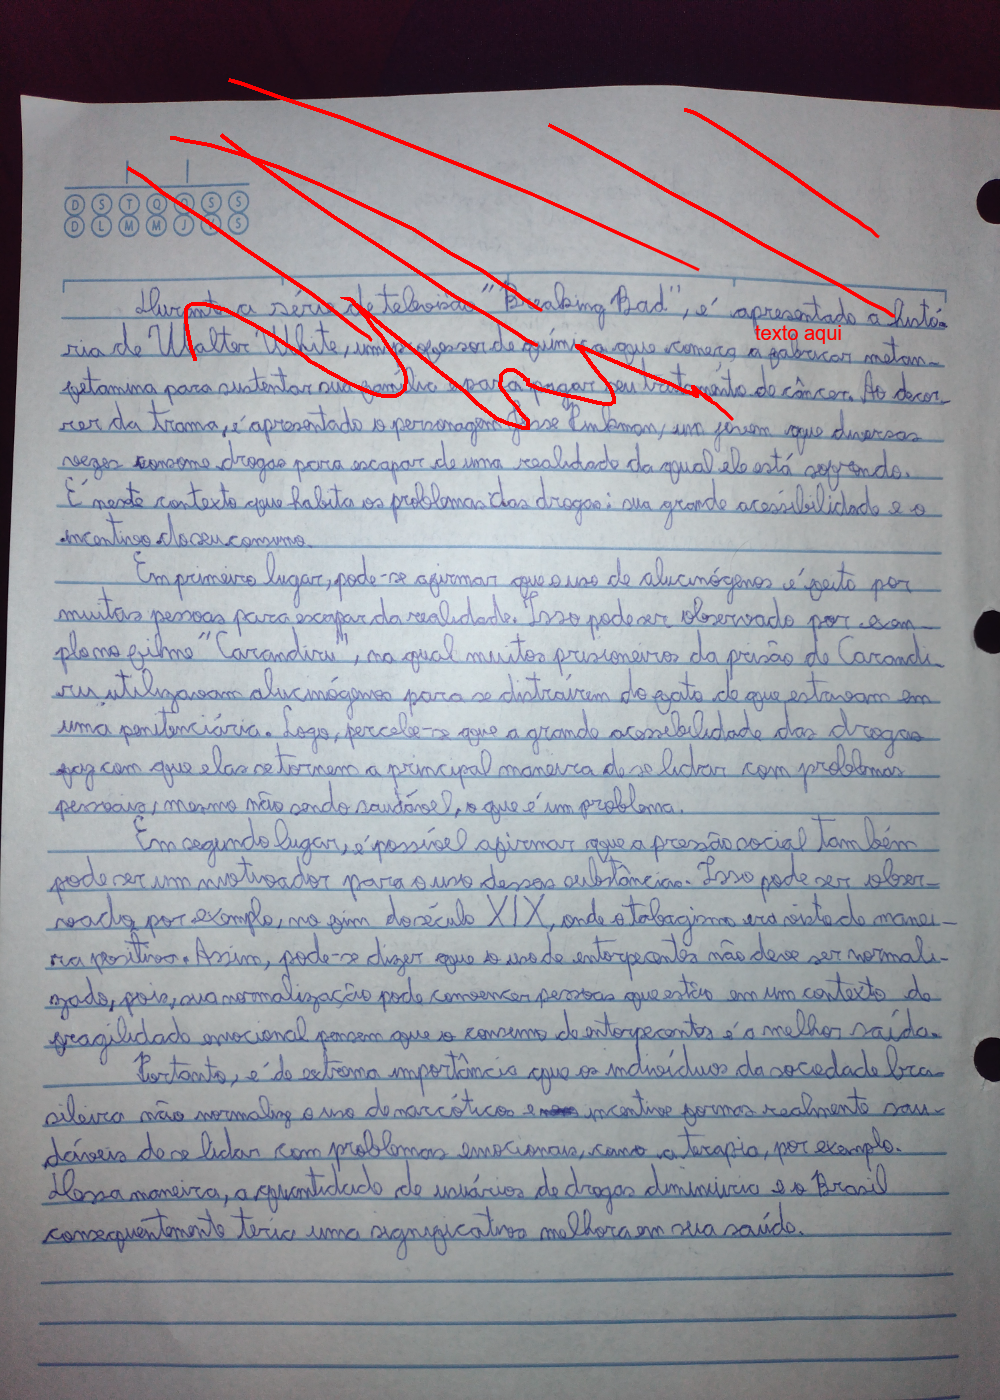 D S T Q Q S S
D L M M J V S
Durante a série de televisão "Breaking Bad", é apresentado a histó-
texto aqui
ria de Walter White, um professor de química que começa a fabricar metan-
fetamina para sustentar sua família e para pagar seu tratamento de câncer. Ao decor-
rer da trama, é apresentado o personagem Jesse Pinkman, um jovem que diversas
vezes consome drogas para escapar de uma realidade da qual ele está sofrendo.
É neste contexto que habita os problemas das drogas: sua grande acessibilidade e o
incentivo do seu consumo.
Em primeiro lugar, pode-se afirmar que o uso de alucinógenos é feito por
muitas pessoas para escapar da realidade. Isso pode ser observado por exem-
plo no filme "Carandiru", na qual muitos prisioneiros da prisão de Carandi-
ru utilizavam alucinógenos para se distraírem do fato de que estavam em
uma penitenciária. Logo, percebe-se que a grande acessibilidade das drogas
faz com que elas se tornem a principal maneira de se lidar com problemas
pessoais, mesmo não sendo saudável, o que é um problema.
Em segundo lugar, é possível afirmar que a pressão social também
pode ser um motivador para o uso dessas substâncias. Isso pode ser obser-
vado, por exemplo, no fim do século XIX, onde o tabagismo era visto de manei-
ra positiva. Assim, pode-se dizer que o uso de entorpecentes não deve ser normali-
zado, pois, sua normalização pode convencer pessoas que estão em um contexto de
fragilidade emocional pensem que o consumo de entorpecentes é a melhor saída.
Portanto, é de extrema importância que os indivíduos da sociedade bra-
sileira não normalize o uso de narcóticos e incentive formas realmente sau-
dáveis de se lidar com problemas emocionais, como a terapia, por exemplo.
Dessa maneira, a quantidade de usuários de drogas diminuiria e o Brasil
consequentemente teria uma significativa melhora em sua saúde.